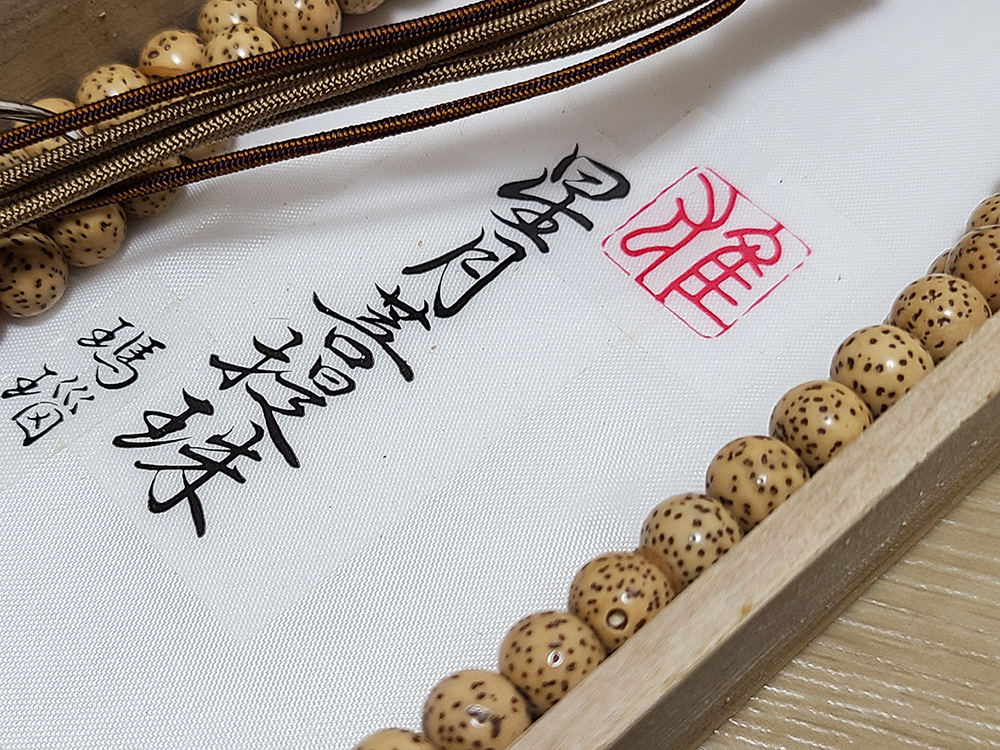 雅
星月菩提珠
瑪瑙